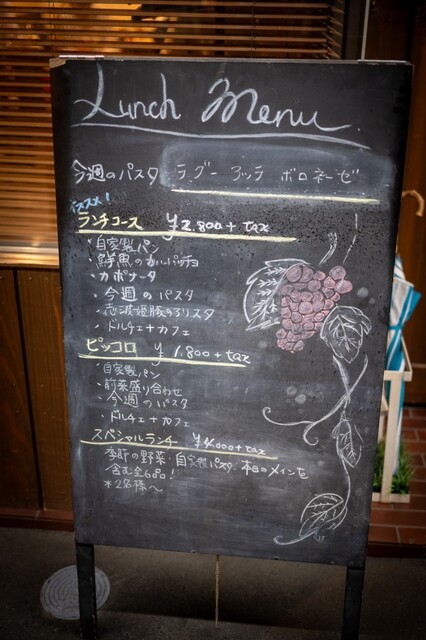 Lunch Menu
今週のパスタ ラグー アッラ ボロネーゼ
オススメ!
ランチコース ¥2.800+tax
・自家製パン
・鮮魚のカルパッチョ
・カポナータ
・今週のパスタ
・志波姫豚のアリスタ
・ドルチェ+カフェ
ピッコロ ¥1.800+tax
・自家製パン
・前菜盛り合わせ
・今週のパスタ
・ドルチェ+カフェ
スペシャルランチ ¥4000+tax
季節の野菜・自家製パスタ・本日のメインを
含む全6品!
*2名様〜